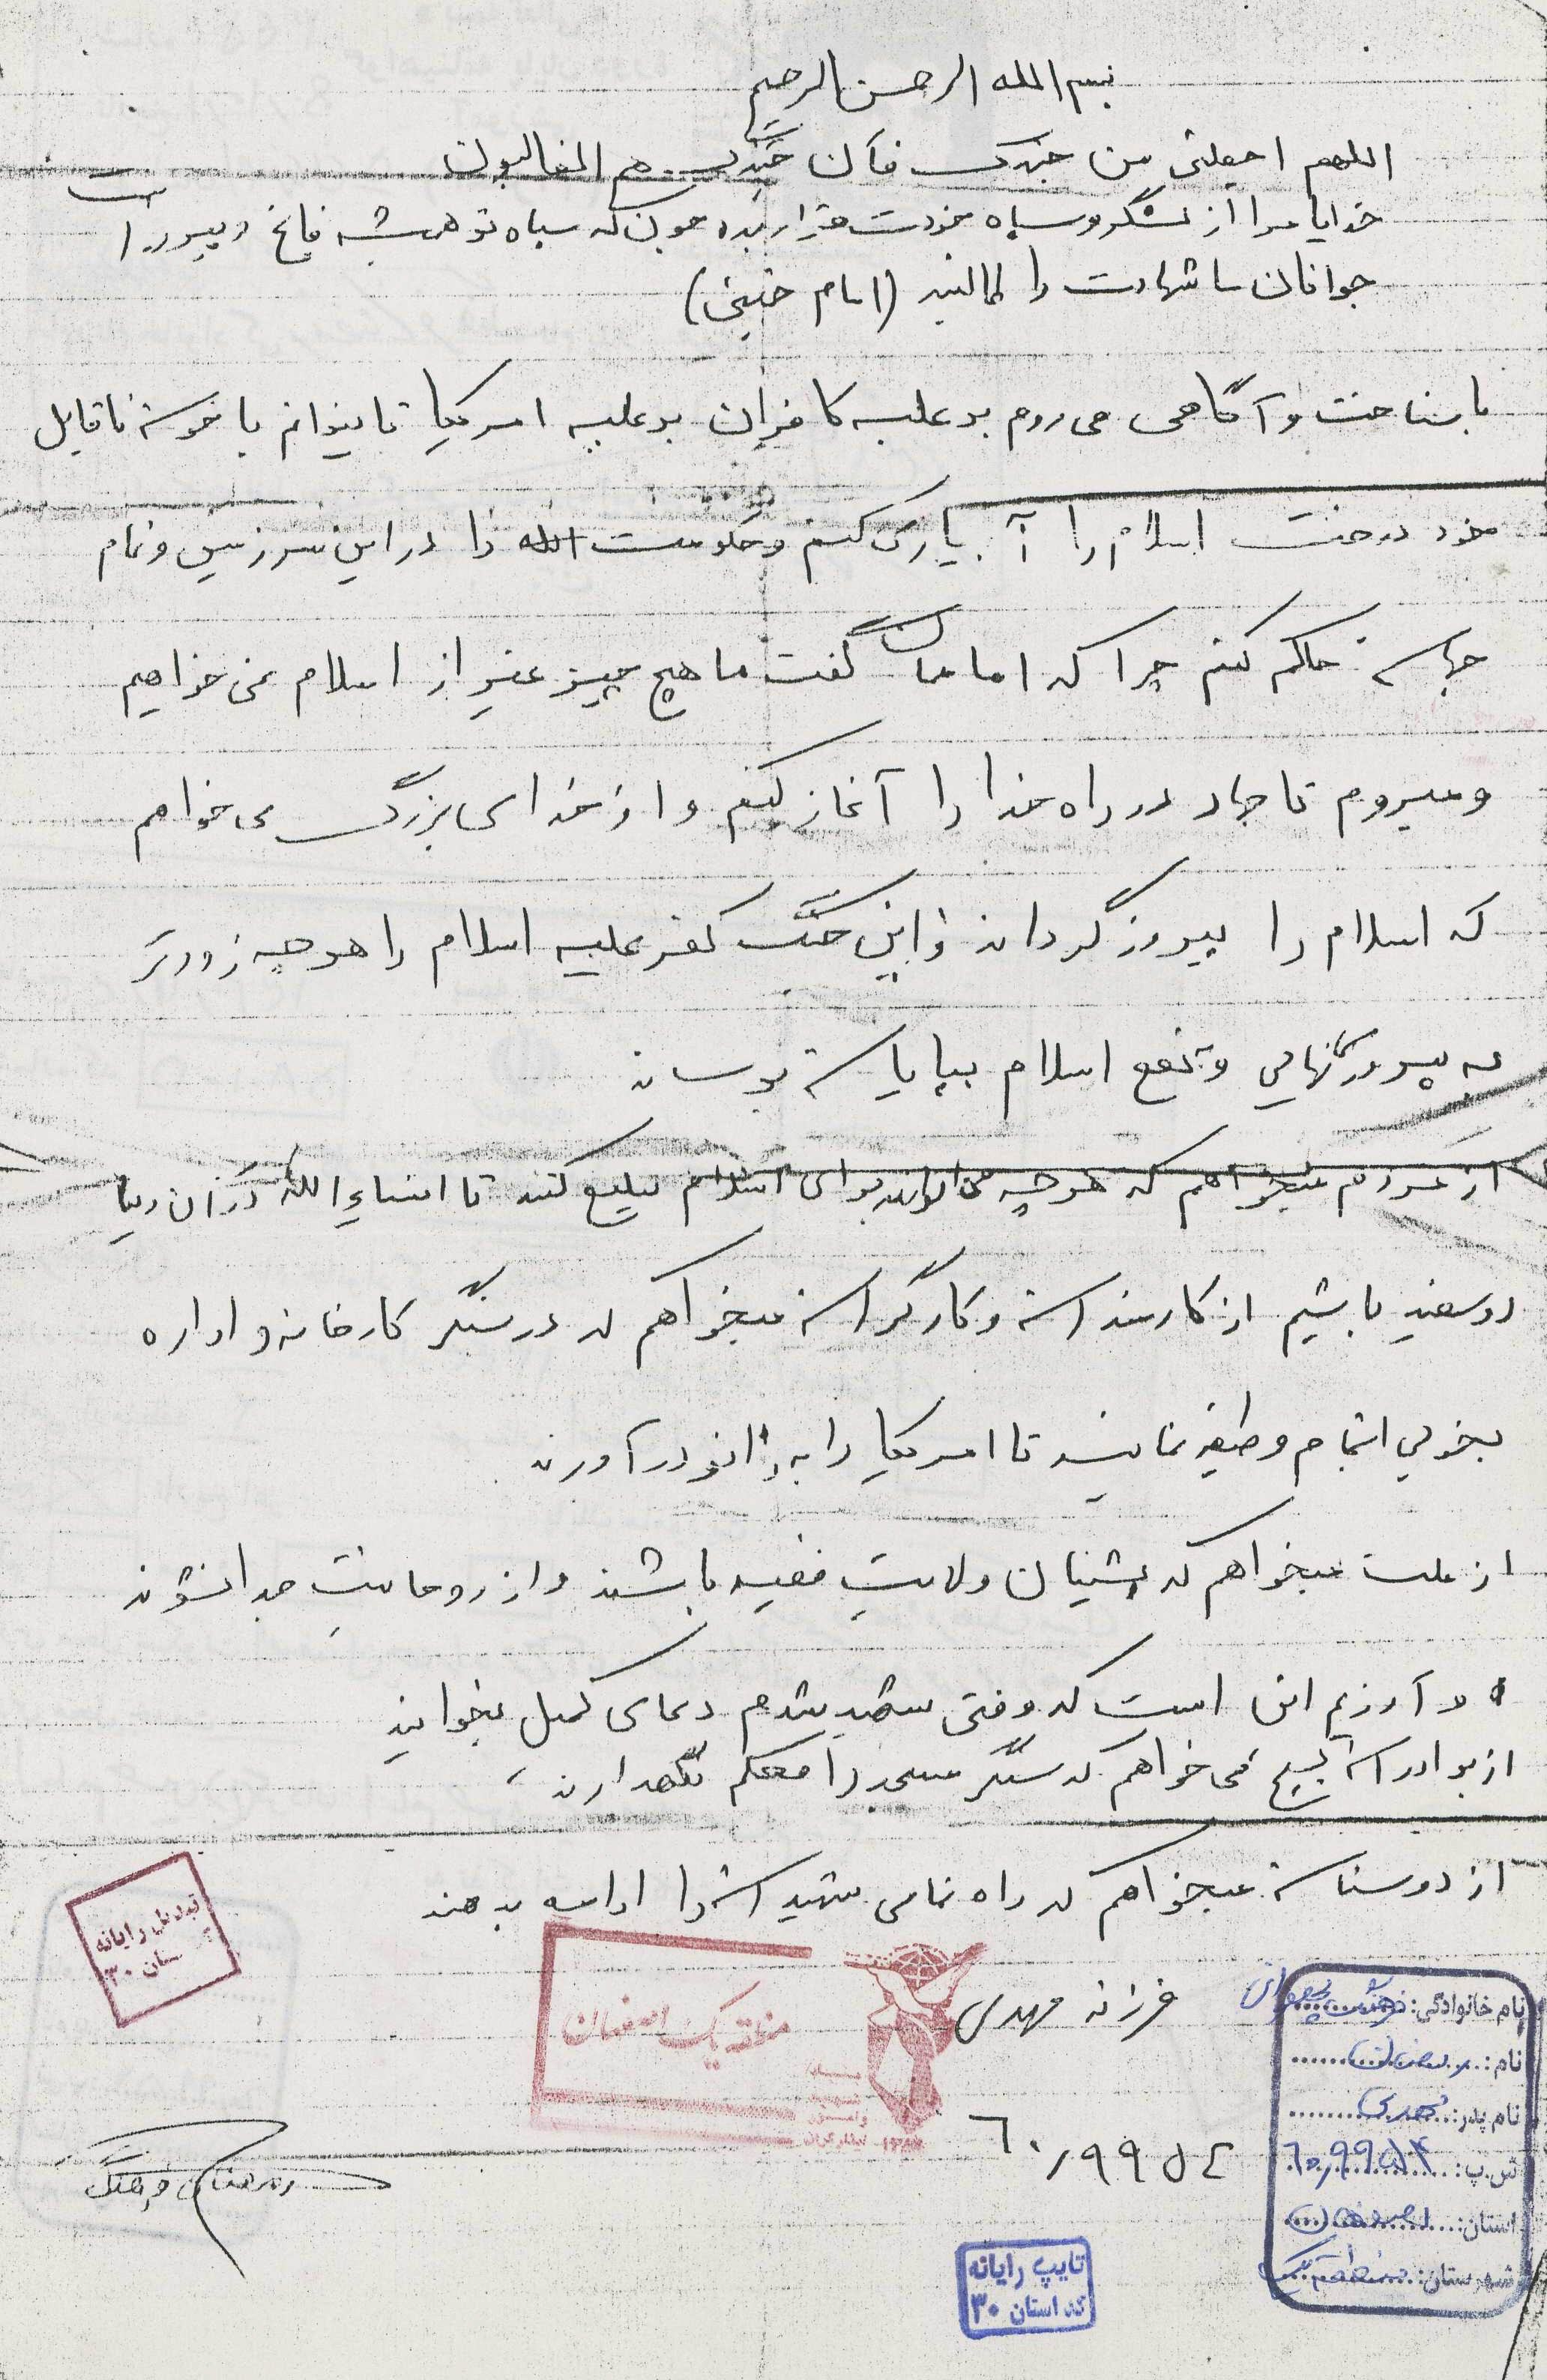 بسم الله الرحمن الرحیم
اللهم اجعلنی من جندک فأن جندک هم الغالبون
خدایا مرا از لشگر و سپاه خودت قرار بده چون که سپاه تو همیشه فاتح و پیروز است
جوانان ما شهادت را طالبند (امام خمینی)
با شناخت و آگاهی می روم بر علیه کافران بر علیه امریکا تا بتوانم با خون ناقابل
خود درخت اسلام را آبیاری کنم و حکومت الله را در این سرزمین و تمام
جهان حاکم کنم چرا که اماممان گفت ما هیچ چیز غیر از اسلام نمی خواهیم
و میروم تا جهاد در راه خدا را آغاز کنم و از خدای بزرگ می خواهم
که اسلام را پیروز گرداند و این جنگ کفر علیه اسلام را هر چه زودتر
به پیروزی نهایی و بنفع اسلام بپایان برساند
از مردم میخواهم که هر چه می توانند برای اسلام تبلیغ کنند تا انشاءالله در آن دنیا
روسفید باشیم از کارمندان و کارگران میخواهم که در سنگر کارخانه و اداره
بخوبی انجام وظیفه نمایند تا امریکا را به زانو درآورند
از ملت میخواهم که پشتیبان ولایت فقیه باشند و از روحانیت جدا نشوند
و آرزیم این است که وقتی شهید شدم دعای کمیل بخوانید
از برادران بسیج می خواهم که سنگر مسجد را محکم نگهدارند
از دوستان میخواهم که راه تمامی شهیدان را ادامه بدهند
فرزند مهدی
۶۰/۹۹۵۴
رمضان فرهنگ
رایانه
۳۰
منطقه یک اصفهان
نام خانوادگی: فرهنگ
نام: رمضان
نام پدر: مهدی
ش.پ: ۶۰/۹۹۵۴
استان: اصفهان
شهرستان: منطقه یک
تایپ رایانه
کد استان ۳۰